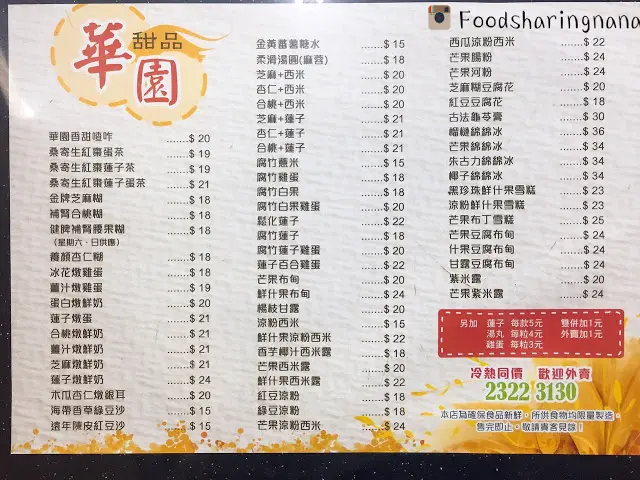 Foodsharingnana
華園
甜品
華園香甜喳咋 .......$ 20
桑寄生紅棗蛋茶 .......$ 19
桑寄生紅棗蓮子茶 .......$ 19
桑寄生紅棗蓮子蛋茶 .......$ 21
金牌芝麻糊 .......$ 18
補腎合桃糊 .......$ 18
健脾補腎腰果糊 .......$ 18
(星期六、日供應)
養顏杏仁糊 .......$ 18
冰花燉雞蛋 .......$ 18
薑汁燉雞蛋 .......$ 19
蛋白燉鮮奶 .......$ 20
蓮子燉蛋 .......$ 21
合桃燉鮮奶 .......$ 21
薑汁燉鮮奶 .......$ 21
芝麻燉鮮奶 .......$ 21
蓮子燉鮮奶 .......$ 24
木瓜杏仁燉銀耳 .......$ 20
海帶香草綠豆沙 .......$ 15
遠年陳皮紅豆沙 .......$ 15
金黃蕃薯糖水 .......$ 15
柔滑湯圓(麻蓉) .......$ 18
芝麻+西米 .......$ 20
杏仁+西米 .......$ 20
合桃+西米 .......$ 20
芝麻+蓮子 .......$ 21
杏仁+蓮子 .......$ 21
合桃+蓮子 .......$ 21
腐竹薏米 .......$ 15
腐竹雞蛋 .......$ 18
腐竹白果 .......$ 18
腐竹白果雞蛋 .......$ 20
鬆化蓮子 .......$ 22
腐竹蓮子 .......$ 18
腐竹蓮子雞蛋 .......$ 20
蓮子百合雞蛋 .......$ 22
芒果布甸 .......$ 20
鮮什果布甸 .......$ 24
楊枝甘露 .......$ 20
涼粉西米 .......$ 15
鮮什果涼粉西米 .......$ 22
香芋椰汁西米露 .......$ 18
芒果西米露 .......$ 20
鮮什果西米露 .......$ 22
紅豆涼粉 .......$ 18
綠豆涼粉 .......$ 18
芒果涼粉西米 .......$ 24
西瓜涼粉西米 .......$ 22
芒果腸粉 .......$ 24
芒果河粉 .......$ 24
芝麻糊豆腐花 .......$ 20
紅豆豆腐花 .......$ 18
古法龜苓膏 .......$ 30
榴槤綿綿冰 .......$ 36
芒果綿綿冰 .......$ 34
朱古力綿綿冰 .......$ 34
椰子綿綿冰 .......$ 34
黑珍珠鮮什果雪糕 .......$ 23
涼粉鮮什果雪糕 .......$ 23
芒果布丁雪糕 .......$ 25
芒果豆腐布甸 .......$ 24
什果豆腐布甸 .......$ 24
甘露豆腐布甸 .......$ 24
紫米露 .......$ 20
芒果紫米露 .......$ 24
另加 蓮子 每款5元 雙併加1元
湯丸 每粒4元 外賣加1元
雞蛋 每粒3元
冷熱同價 歡迎外賣
2322 3130
本店為確保食品新鮮，所供食物均限量製造，
售完即止，敬請貴客見諒！